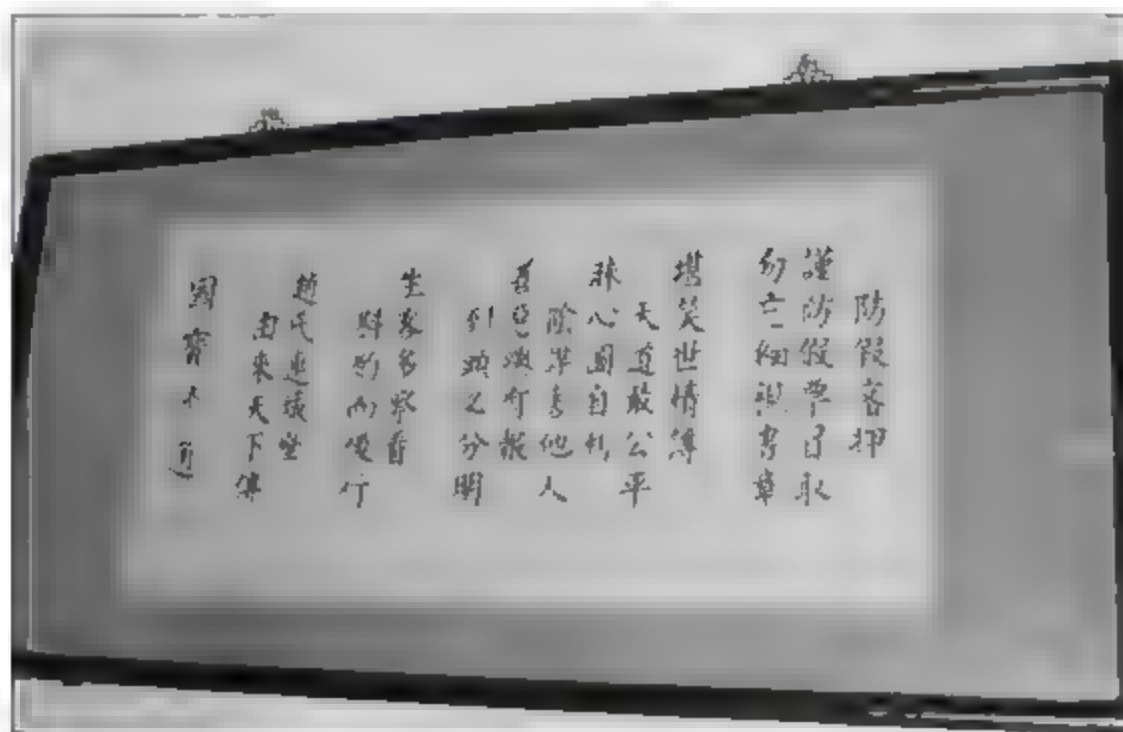 防假客押
謹防假學冒取
勿亡細視書章
堪笑世情薄
天道最公平
昧心圖自利
陰謀害他人
善惡須有報
到頭必分明
生客多察看
斟酌而後行
趙氏連城璧
由來天下傳
國寶木道